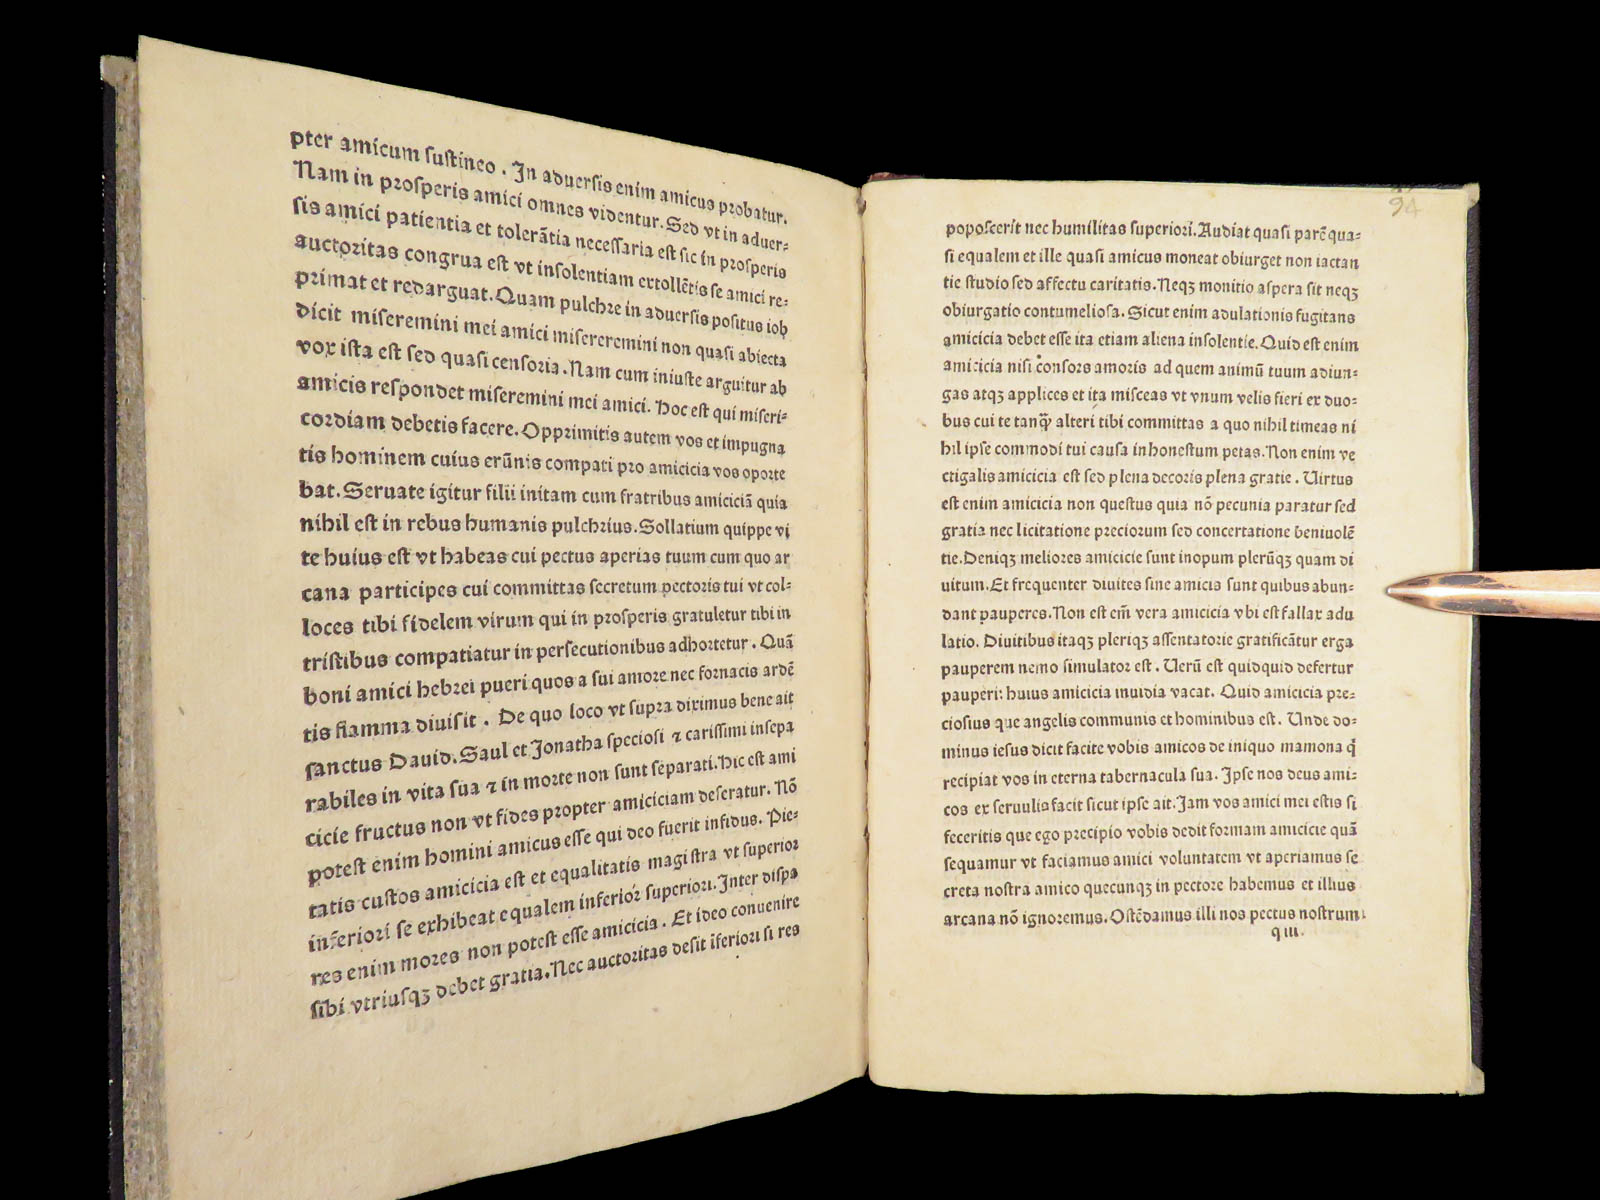 pter amicum sustineo . In aduersis enim amicus probatur.
Nam in prosperis amici omnes videntur. Sed vt in aduer=
sis amici patientia et tolerãtia necessaria est sic in prosperis
auctoritas congrua est vt insolentiam extollẽtis se amici re=
primat et redarguat. Quam pulchre in aduersis positus iob
dicit miseremini mei amici misereremini non quasi abiecta
vox ista est sed quasi censoria. Nam cum iniuste arguitur ab
amicis respondet miseremini mei amici. Hoc est qui miseri=
cordiam debetis facere. Opprimitis autem vos et impugna
tis hominem cuius erũnis compati pro amicicia vos oporte
bat. Seruate igitur filii initam cum fratribus amiciciã quia
nihil est in rebus humanis pulchrius. Sollatium quippe vi
te huius est vt habeas cui pectus aperias tuum cum quo ar
cana participes cui committas secretum pectoris tui vt col=
loces tibi fidelem virum qui in prosperis gratuletur tibi in
tristibus compatiatur in persecutionibus adhortetur . Quã
boni amici hebrei pueri quos a sui amore nec fornacis ardẽ
tis flamma diuisit . De quo loco vt supra diximus bene ait
sanctus Dauid. Saul et Jonatha speciosi ⁊ carissimi insepa
rabiles in vita sua ⁊ in morte non sunt separati. Hic est ami
cicie fructus non vt fides propter amiciciam deseratur. Nõ
potest enim homini amicus esse qui deo fuerit infidus. Pie=
tatis custos amicicia est et equalitatis magistra vt superior
inferiori se exhibeat equalem inferior superiori. Inter dispa
res enim mores non potest esse amicicia . Et ideo conuenire
sibi vtriusqꝫ debet gratia. Nec auctoritas desit īferiori si res
94
poposcerit nec humilitas superiori. Audiat quasi parẽ qua=
si equalem et ille quasi amicus moneat obiurget non iactan
tie studio sed affectu caritatis. Neqꝫ monitio aspera sit neqꝫ
obiurgatio contumeliosa. Sicut enim adulationis fugitans
amicicia debet esse ita etiam aliena insolentie. Quid est enim
amicicia nisi consors amoris ad quem animũ tuum adiun=
gas atqꝫ applices et ita misceas vt vnum velis fieri ex duo=
bus cui te tanq̃ alteri tibi committas a quo nihil timeas ni
hil ipse commodi tui causa inhonestum petas. Non enim ve
ctigalis amicicia est sed plena decoris plena gratie . Uirtus
est enim amicicia non questus quia nõ pecunia paratur sed
gratia nec licitatione preciorum sed concertatione beniuolẽ
tie. Deniqꝫ meliores amicicie sunt inopum plerũqꝫ quam di
uitum. Et frequenter diuites sine amicis sunt quibus abun=
dant pauperes. Non est em̃ vera amicicia vbi est fallax adu
latio. Diuitibus itaqꝫ pleriqꝫ assentatorie gratificãtur erga
pauperem nemo simulator est . Uerũ est quidquid defertur
pauperi: huius amicicia inuidia vacat. Quid amicicia pre=
ciosius que angelis communis et hominibus est . Unde do=
minus iesus dicit facite vobis amicos de iniquo mamona q̃
recipiat vos in eterna tabernacula sua. Ipse nos deus ami=
cos ex seruulis facit sicut ipse ait. Jam vos amici mei estis si
feceritis que ego precipio vobis dedit formam amicicie quã
sequamur vt faciamus amici voluntatem vt aperiamus se
creta nostra amico quecunqꝫ in pectore habemus et illius
arcana nõ ignoremus. Ostẽdamus illi nos pectus nostrum
q iii.